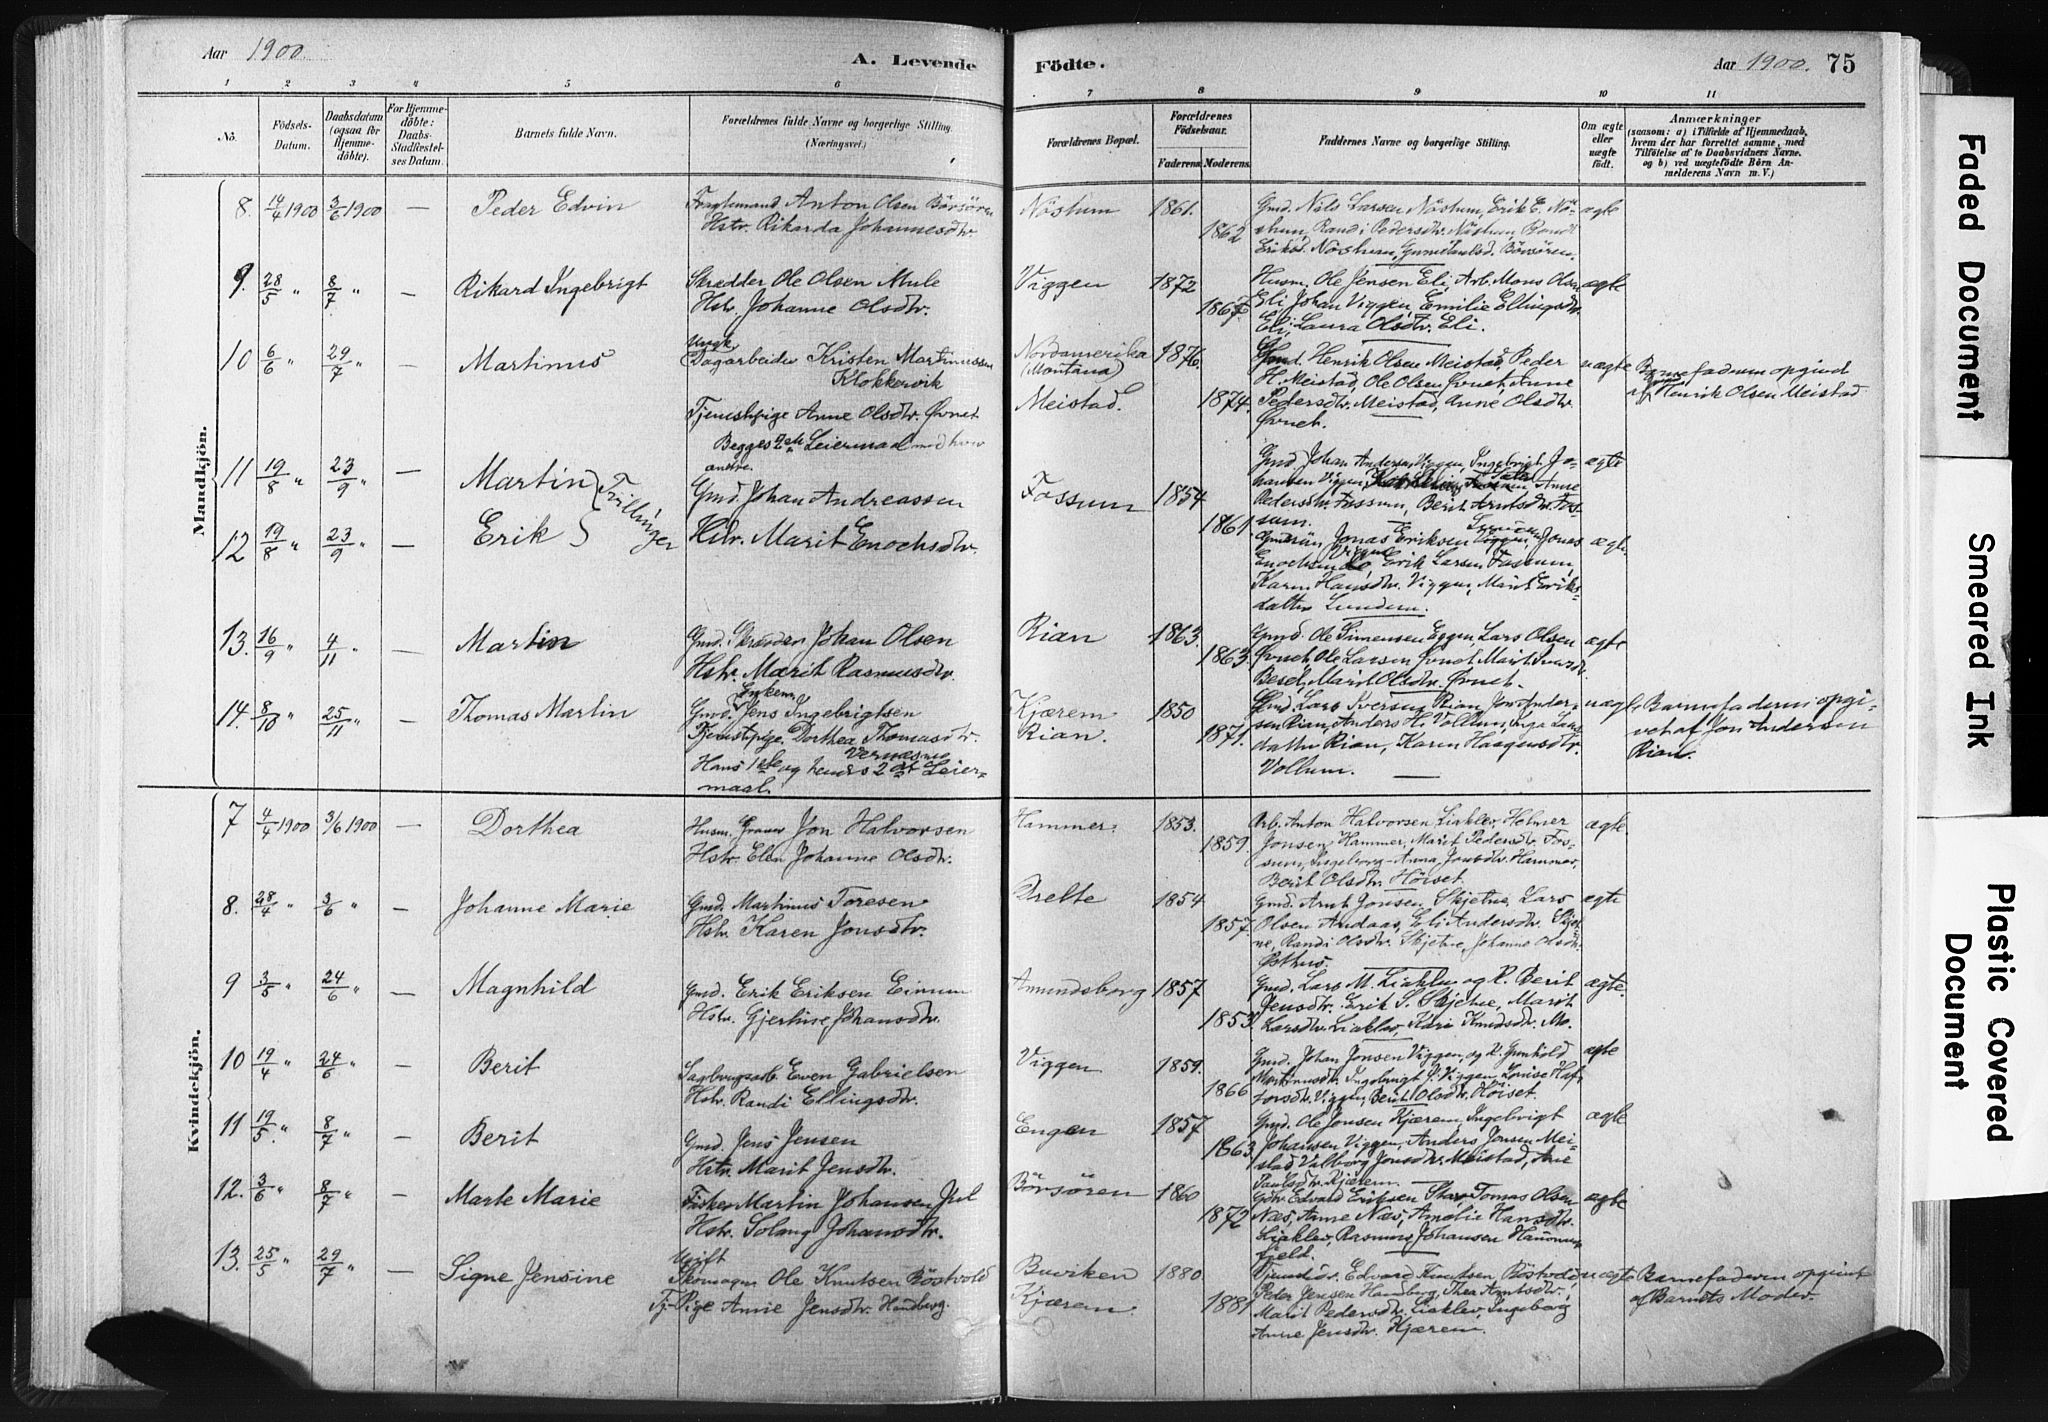 Aar 1900. A. Levende
1 2 3 4 5 6
No. Födsels-Datum. Daabsdatum (ogsaa for Hjemme-döbte). For Hjemme-döbte: Daabs-Stadfæstel-ses Datum. Barnets fulde Navn. Forældrenes fulde Navne og borgerlige Stilling. (Næringsvei.)
Födte. Aar 1900. 75
7 8 9 10 11
Forældrenes Bopæl. Forældrenes Födselsaar. Faderens. Moderens. Faddernes Navne og borgerlige Stilling. Om ægte eller uægte födt. Anmærkninger (saasom: a) i Tilfælde af Hjemmedaab, hvem der har forrettet samme, med Tilföielse af to Daabsvidners Navne, og b) ved uægtefödte Börn Anmelderens Navn m. V.)
Mandkjön.
8. 14/4 1900 3/6 1900 — Peder Edvin
Fragtemand Anton Olsen Börsören
Hstr. Rikarda Johannesdtr.
Nöstum 1861. 1862
Gmd. Nils Larsen Nöstum, Erik E. Nö-
stum, Randi Pedersdtr. Nöstum
Nöstum, Börsören.
ægte
9. 28/5 " 8/7 " — Rikard Ingebrigt
Skrædder Ole Olsen Mule
Hstr. Johanne Olsdtr.
Viggen 1872 1867
Husm. Ole Jensen Eli, Arb. Mons Olsen
Eli, Johan Viggen, Emilie Ellingsdtr.
Eli, Laura Olsdtr. Eli.
ægte
10 6/6 " 29/7 " — Martinus
Ungk.
Dagarbeider Kristen Martinussen
Klokkervik
Tjenestepige Anne Olsdtr. Övnet
Begges 2det Leiermaal med hver-
andre.
Nordamerika
(Montana)
Meistad.
1876. 1874.
Gmd. Henrik Olsen Meistad, Peder
H. Meistad, Ole Olsen Övnet, Anne
Pedersdtr. Meistad, Anne Olsdtr.
Övnet.
uægte
Barnefaderen opgivet
af Henrik Olsen Meistad
11 19/8 " 23/9 " — Martin
12 19/8 " 23/9 " — Erik
Tvillinger
Gmd. Johan Andreassen
Hstr. Marit Enochsdtr.
Fossum 1854 1861
Gmd. Johan Andersen Viggen, Ingebrigt Jo-
hansen Viggen, Anne
Pedersdtr. Fossum, Berit Arntsdtr. Fos-
sum.
ægte
Jonas Eriksen Viggen, Jonas
Erik Larsen Fossum,
Karen Hansdtr. Viggen, Marit Eriks-
datter Lundem.
ægte
13. 16/9 " 4/11 " — Martin
Gmd. Skrædder Johan Olsen
Hstr. Marit Rasmusdtr.
Rian 1863. 1863.
Gmd. Ole Simensen Eggen, Lars Olsen
Övnet, Ole Larsen Övnet, Marit
Marit Olsdtr. Övnet.
ægte
14. 8/10 " 25/11 " — Thomas Martin
Enkem.
Gmd. Jens Ingebrigtsen
Tjenestepige Dorthea Thomasdtr.
Vernæsmo
Hans 1ste og hendes 2det Leier-
maal.
Kjærem
Rian.
1850 1871.
Gmd. Lars Iversen Rian, Jon Ander-
sen Rian, Anders H. Vollum, Inga Lars-
datter Rian, Karen Haagensdtr.
Vollum.
uægte
Barnefaderen opgi-
vet af Jon Andersen
Rian.
Kvindekjön.
7 4/4 1900 3/6 1900 — Dorthea
Husm. Graver Jon Halvorsen
Hstr. Elen Johanne Olsdtr.
Hammer. 1853. 1859.
Arb. Anton Halvorsen Liaklev, Helmer
Jonsen Hammer, Marit Pedersdtr. Fos-
sum, Ingeborg Anna Jonsdtr. Hammer,
Berit Olsdtr. Höiset.
ægte
8. 28/4 " 3/6 " — Johanne Marie
Gmd. Martinus Toresen
Hstr. Karen Jonsdtr.
1854 1857.
Gmd. Arnt Jonsen Skjetne, Lars
Olsen Andaas, Eli Andersdtr. Skjet-
ne, Randi Olsdtr. Skjetne, Johanne Olsdtr.
Östhus.
ægte
9 3/5 " 24/6 " — Magnhild
Gmd. Erik Eriksen Einum
Hstr. Gjertine Johansdtr.
Amundsborg 1857 1853.
Gmd. Lars M. Liaklev og K. Berit
Jensdtr. Erik S. Skjetne, Marit
Larsdtr. Liaklev, Kari Knudsdtr. Mo.
ægte.
10 19/4 " 24/6 " — Berit
Sagbrugsarb. Even Gabrielsen
Hstr. Randi Ellingsdtr.
Viggen 1859. 1866
Gmd. Johan Jonsen Viggen, og K. Gunhild
Martinusdtr. Ingebrigt J. Viggen, Louise Haf-
torsdtr. Viggen, Berit Olsdtr. Höiset.
ægte
11 19/5. " 8/7 " — Berit
Gmd. Jens Jensen
Hstr. Marit Jensdtr.
Engen 1857 1863.
Gmd. Ole Jonsen Kjærem, Ingebrigt
Johansen Viggen, Anders Jonsen Mei-
stad, Valborg Jonsdtr. Meistad, Ane
Paulsdtr. Kjærem.
ægte
12. 3/6 " 8/7 " — Marte Marie
Fisker Martin Johansen Jul
Hstr. Solaug Johansdtr.
Börsören 1860 1872
Edvard Eriksen Tomas Olsen
Næs, Anne Næs, Amalie Hansdtr.
Liaklev, Rasmus Johansen Hammer-
field.
ægte
13. 25/5 " 29/7 " — Signe Jensine
Ugift
Skomager Ole Knutsen Böstvold
Tj. Pige Anne Jensdtr. Hamberg.
Buviken
Kjærem.
1880. 1881
Edvard Knutsen Böstvold
Peder Jensen Hamberg, Thea Arntsdtr.
Marit Pedersdtr. Liaklev, Ingeborg
Anne Jensdtr. Kjærem.
uægte
Barnefaderen opgivet
af Barnets Moder.
Faded Document
Smeared Ink
Plastic Covered Document